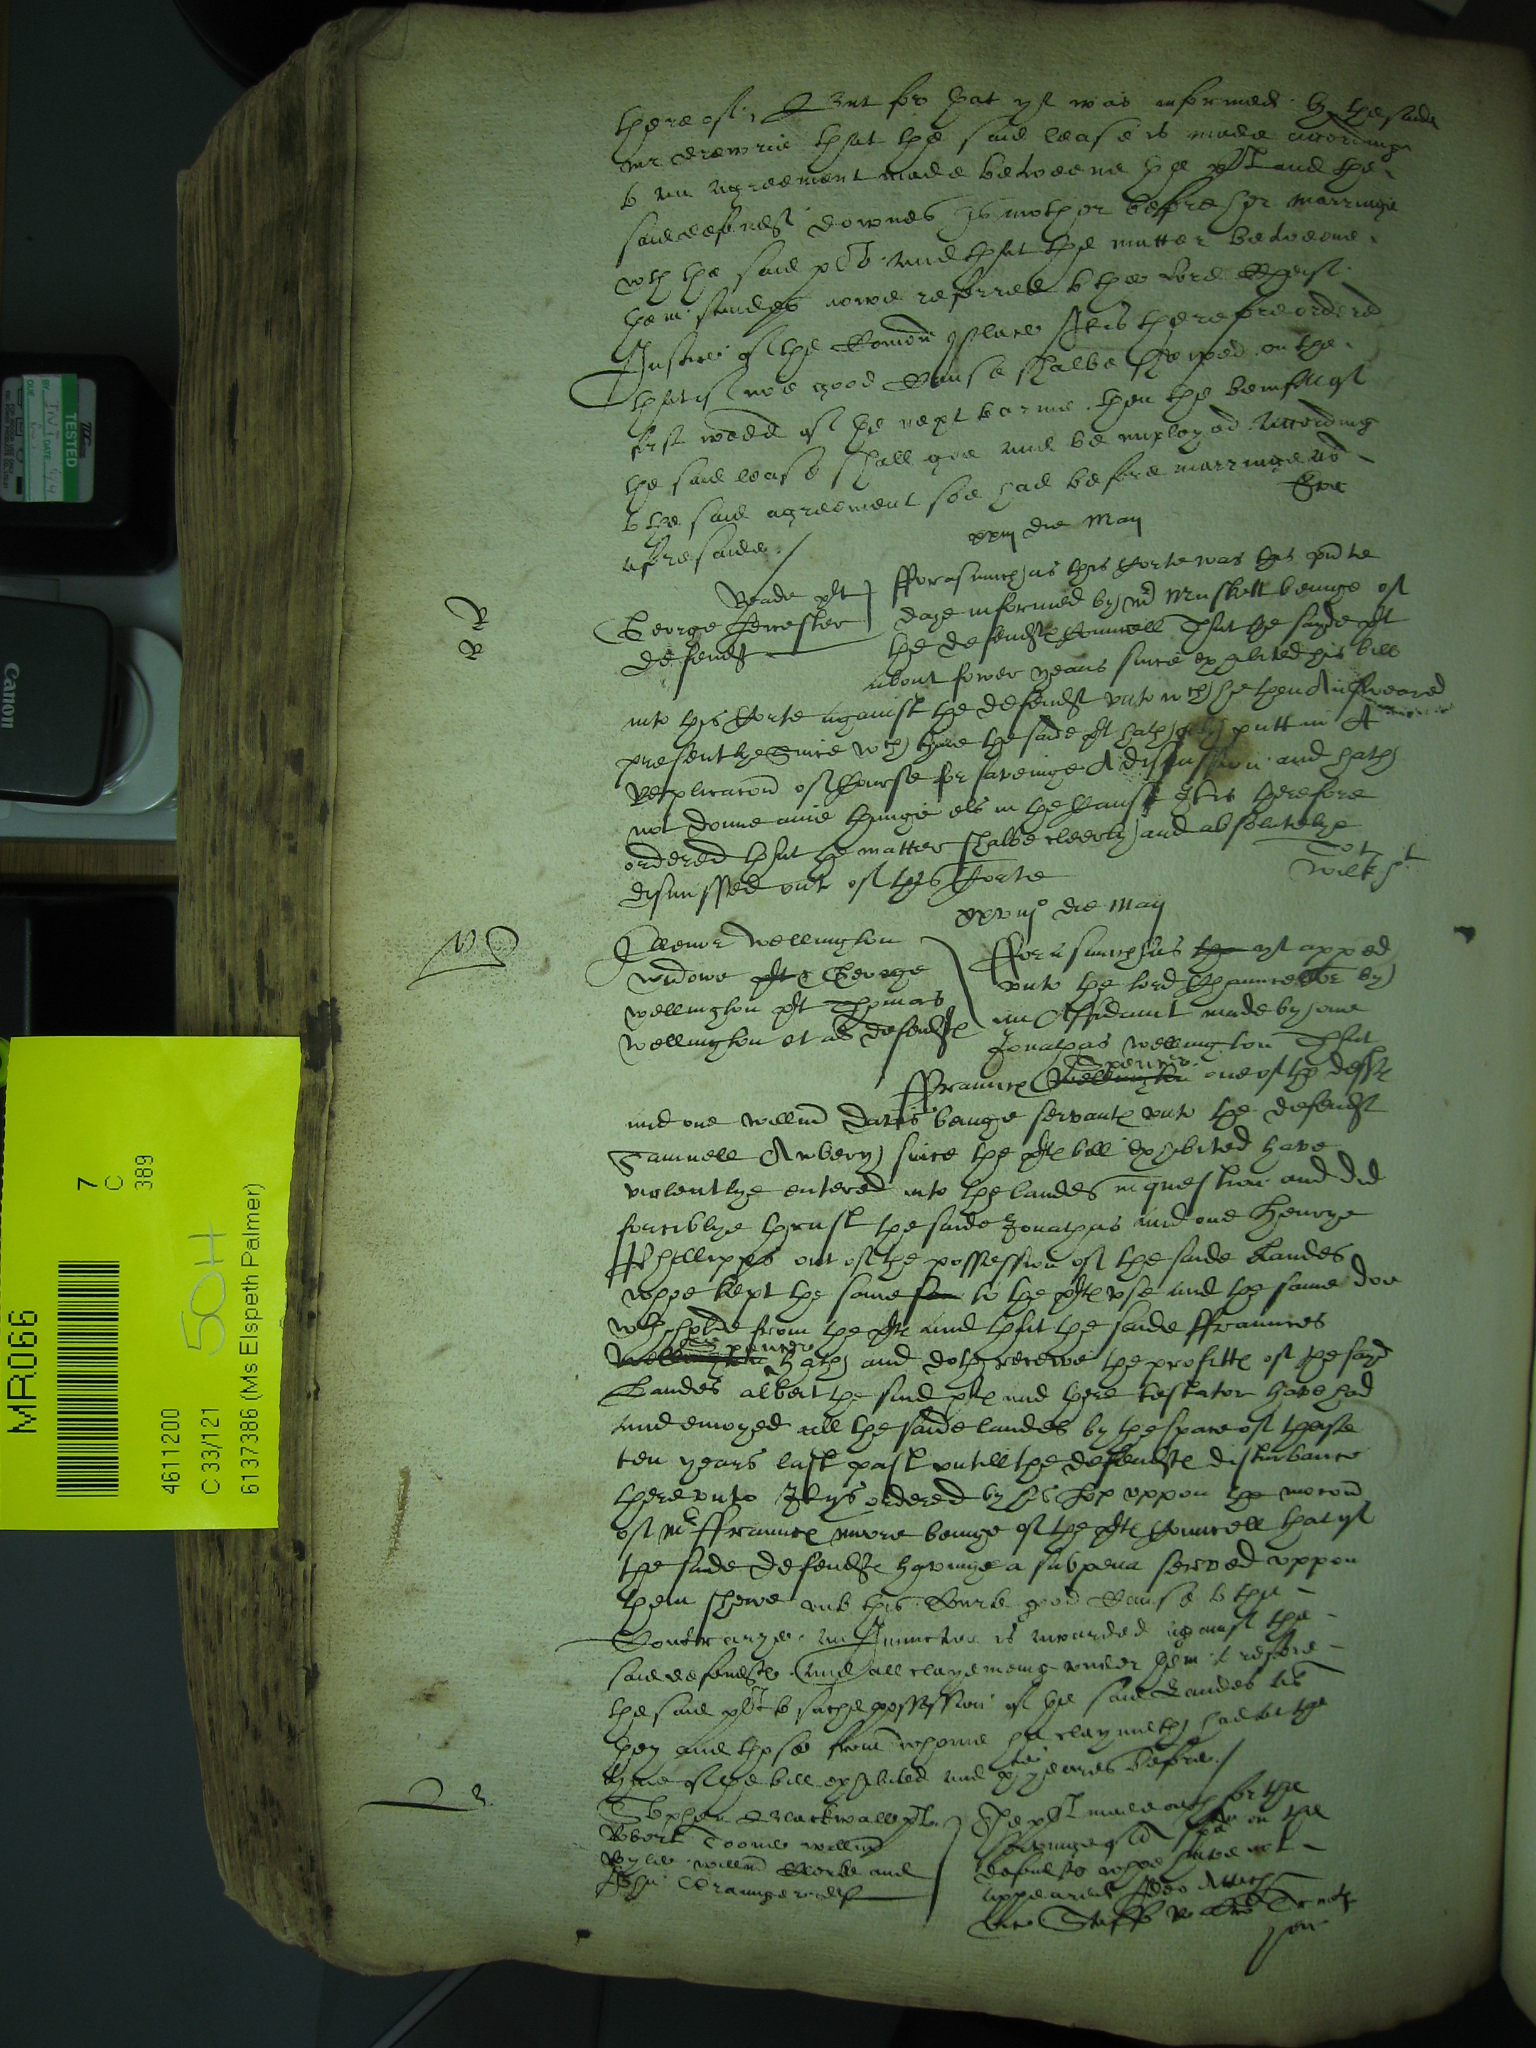 thereof, But for that yt was informed by the saide
mr drewrie that the said lease is made according
to an agreement made betweene the plt and the
said defendt downes his mother before her marriage
wth the said plt. And that the matter betweene
them standes nowe referred to the Lord Cheif
Justice of the Comon place It is therefore ordered
that if noe good Cause shalbe shewed on the
first weeke of the next tearme then the benefitt of
the said lease shall goe and be imployed According
to the said agreement soe had before marriage as
aforesaide./
xxiij die Maij
Reade plt
George Forester
defendt
R
R
fforasmuch as this Corte was this pnte
daye informed by mr Muskett beinge of
the defendtes Councell That the sayde plt
about fower yeares since exhibited his bill
into this Corte against the defendt unto wch he then Aunsweared
presentlye Since wch tyme the saide plt hath only putt in A
Replicacon of Course for saveinge A dismission and hath
not donne anie thinge els in the Cause It is therefore
ordered that the matter shalbe cleerly and absolutelye
dismissed out of this Corte
xxviijo die Maij
Ellenor Wellington
widowe plt & George
Wellington plt Thomas
Wellington et als defendtes
fforasmuch as the yt apped
unto the lord Chauncellor by
an Affidavit made by one
Jonathas Wellington That
Spencer
ffraunces Wellington one of the deftes
and one Willm Dates beinge servantes unto the defendt
Samuell Awbery since the pltes bill exhibited have
violentlye entered into the landes in question and did
forciblye thrust the saide Jonathas and one Henrye
Phillippes out of the possession of the saide Landes
whoe kept the same to the pltes use and the same doe
wthholde from the pltes and that the saide ffraunces
Spencer
Wellington hath and doth receive the profittes of the sayd
Landes albeit the said pltes and there testator have had
and enioyed all the saide landes by the space of theise
ten yeares last past untill the defendtes disturbance
thereunto It ys ordered by his Lop uppon the mocon
of Mr ffraunces Moore beinge of the pltes Councell that yf
the saide defendtes havinge a subpena served uppon
them shewe not unto this Courte good Cause to the
Contrarye. An Iniunction is awarded against the
said defendtes And all claymeing under them to restore
the said plt to suche possession of the said Landes as
they and those from whome he claymeth had at the
tyme of the bill exhibited and yeares before./
Stephen Blackwall plt
Robert Toone Willm
Willm Clerke and
John Graunger deftes
The plt made oath for the
serveinge of a on the
defendtes whoe have not
appeared Ideo Attach
Staff
MR066
7
C
389
4611200
C 33/121
50H
6137386 (Ms Elspeth Palmer)
TESTED
BY
DATE
DUE
INT
Canon